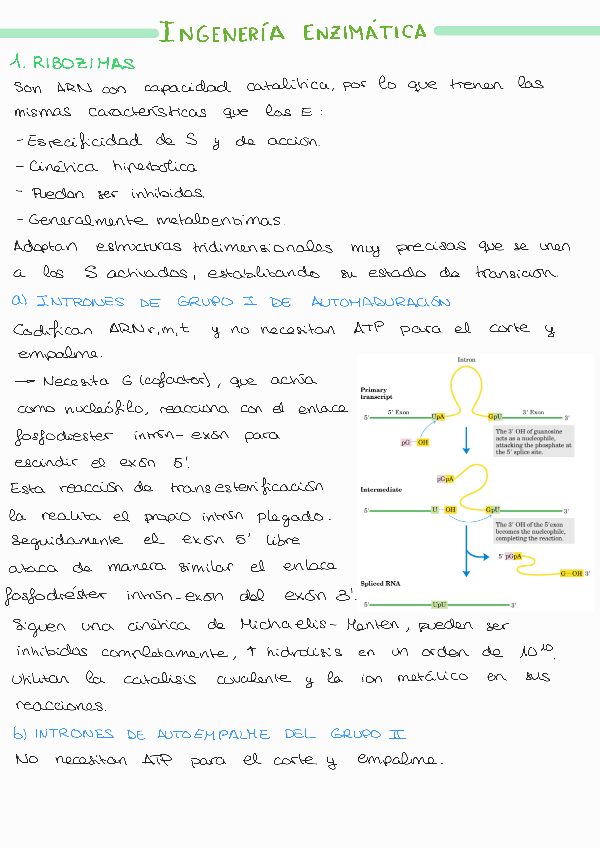 INGENERÍA ENZIMÁTICA
1. RIBOZIMAS
Son ARN con capacidad catalítica, por lo que tienen las
mismas características que las E:
- Especificidad de S y de acción.
- Cinética hiperbólica
- Puedan ser inhibidas.
- Generalmente metaloenzimas.
Adoptan estructuras tridimensionales muy precisas que se unen
a los S activados, establizando su estado de transición.
a) INTRONES DE GRUPO I DE AUTOMADURACIÓN
Codifican ARN r,m,t y no necesitan ATP para el corte y
empalme.
→ Necesita G (cofactor), que actúa
como nucleófilo, reacciona con el enlace
fosfodiester intrón-exón para
escindir el exón 5'.
Esta reacción de transesterificación
la realiza el propio intrón plegado.
Seguidamente el exón 5' libre
ataca de manera similar el enlace
fosfodiéster intrón-exón del exón 3'.
Intron
Primary
transcript
5' Exon
3' Exon
5'
UpA
GpU
3'
pG
OH
The 3' OH of guanosine
acts as a nucleophile,
attacking the phosphate at
the 5' splice site.
pGpA
Intermediate
5'
U
OH
GpU
3'
The 3' OH of the 5' exon
becomes the nucleophile,
completing the reaction.
5' pGpA
G—OH 3'
Spliced RNA
5'
UpU
3'
Siguen una cinética de Michaelis-Menten, pueden ser
inhibidas completamente, ↑ hidrólisis en un orden de 10¹⁰.
Utilizan la catálisis covalente y la ion metálico en sus
reacciones.
b) INTRONES DE AUTOEMPALME DEL GRUPO II
No necesitan ATP para el corte y empalme.